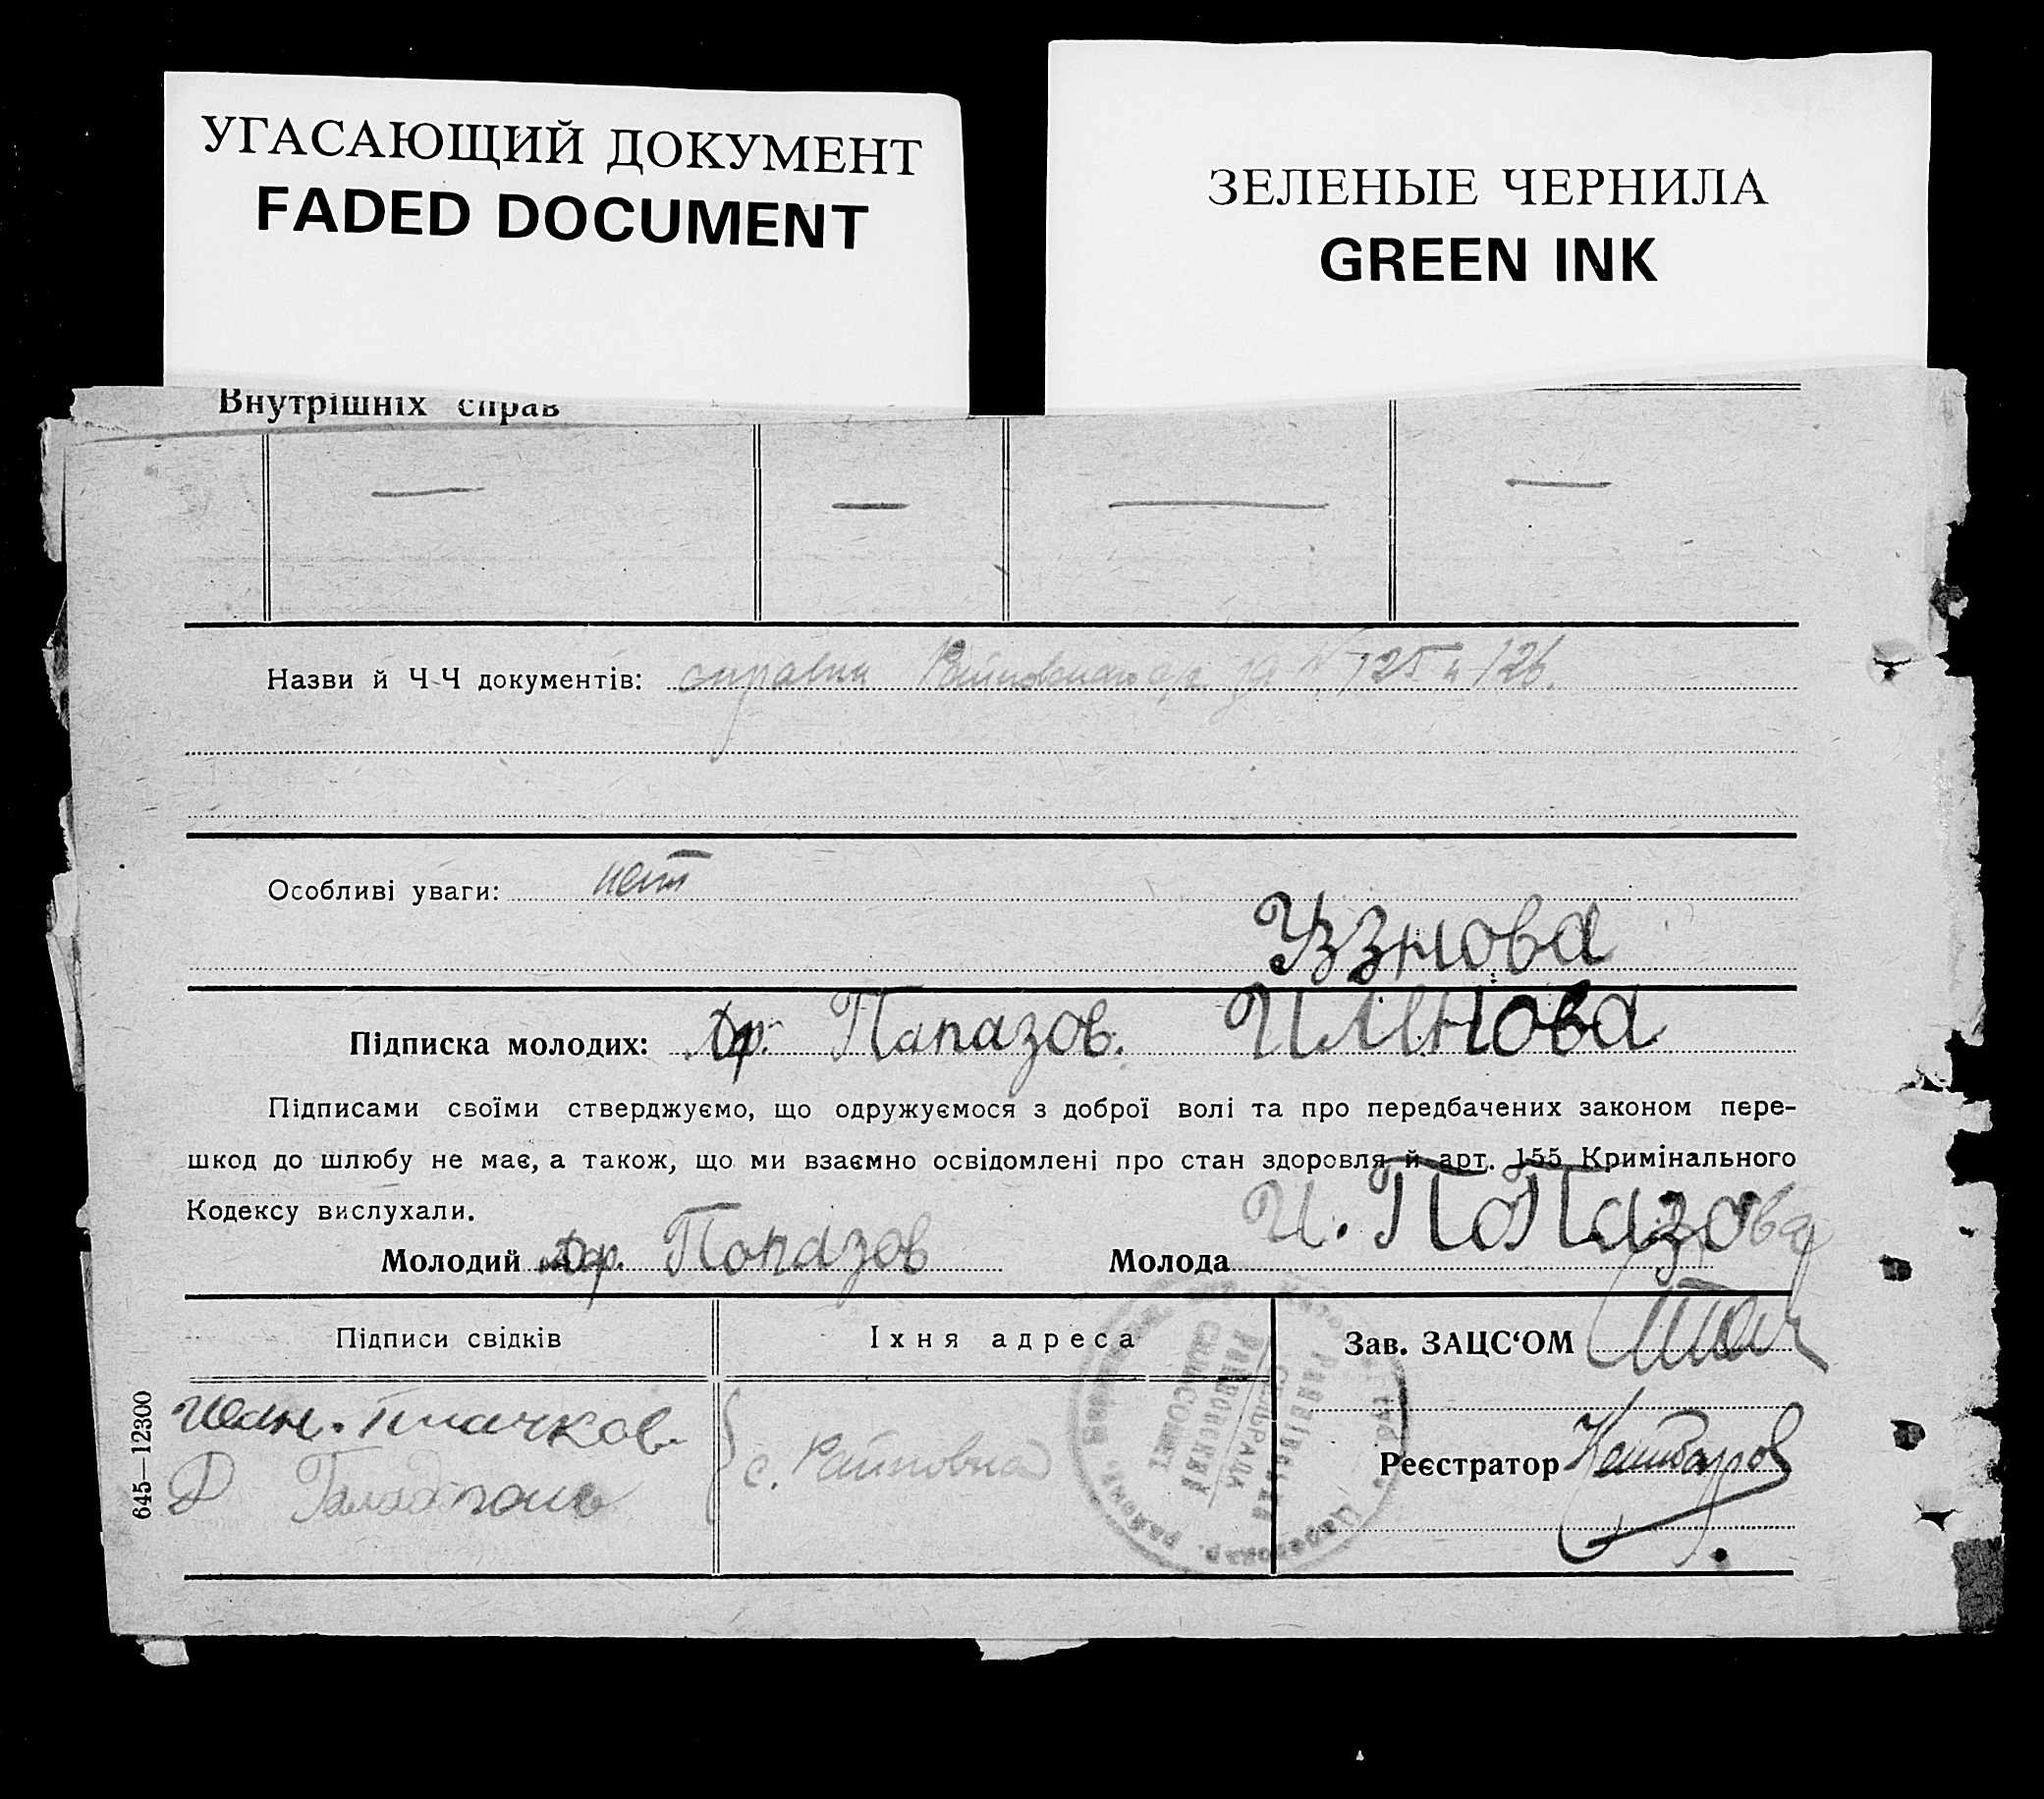 УГАСАЮЩИЙ ДОКУМЕНТ
FADED DOCUMENT
ЗЕЛЕНЫЕ ЧЕРНИЛА
GREEN INK
Внутрішніх справ
Назви й Ч-Ч документів: справки за № 125 и 126.
Особливі уваги: нет
Узнова
Підписка молодих: Др. Папазов. Иленова
Підписами своїми стверджуємо, що одружуємося з доброї волі та про передбачених законом пере-
шкод до шлюбу не має, а також, що ми взаємно освідомлені про стан здоровля й арт. 155 Кримінального
Кодексу вислухали.
Молодий Др. Попазов Молода И. ПоПазова
Підписи свідків Їхня адреса Зав. ЗАЦС‘ОМ
РАЙНОВСКИЙ
СЕЛЬСОВЕТ
СІЛЬРАДА
Реєстратор
645—12300